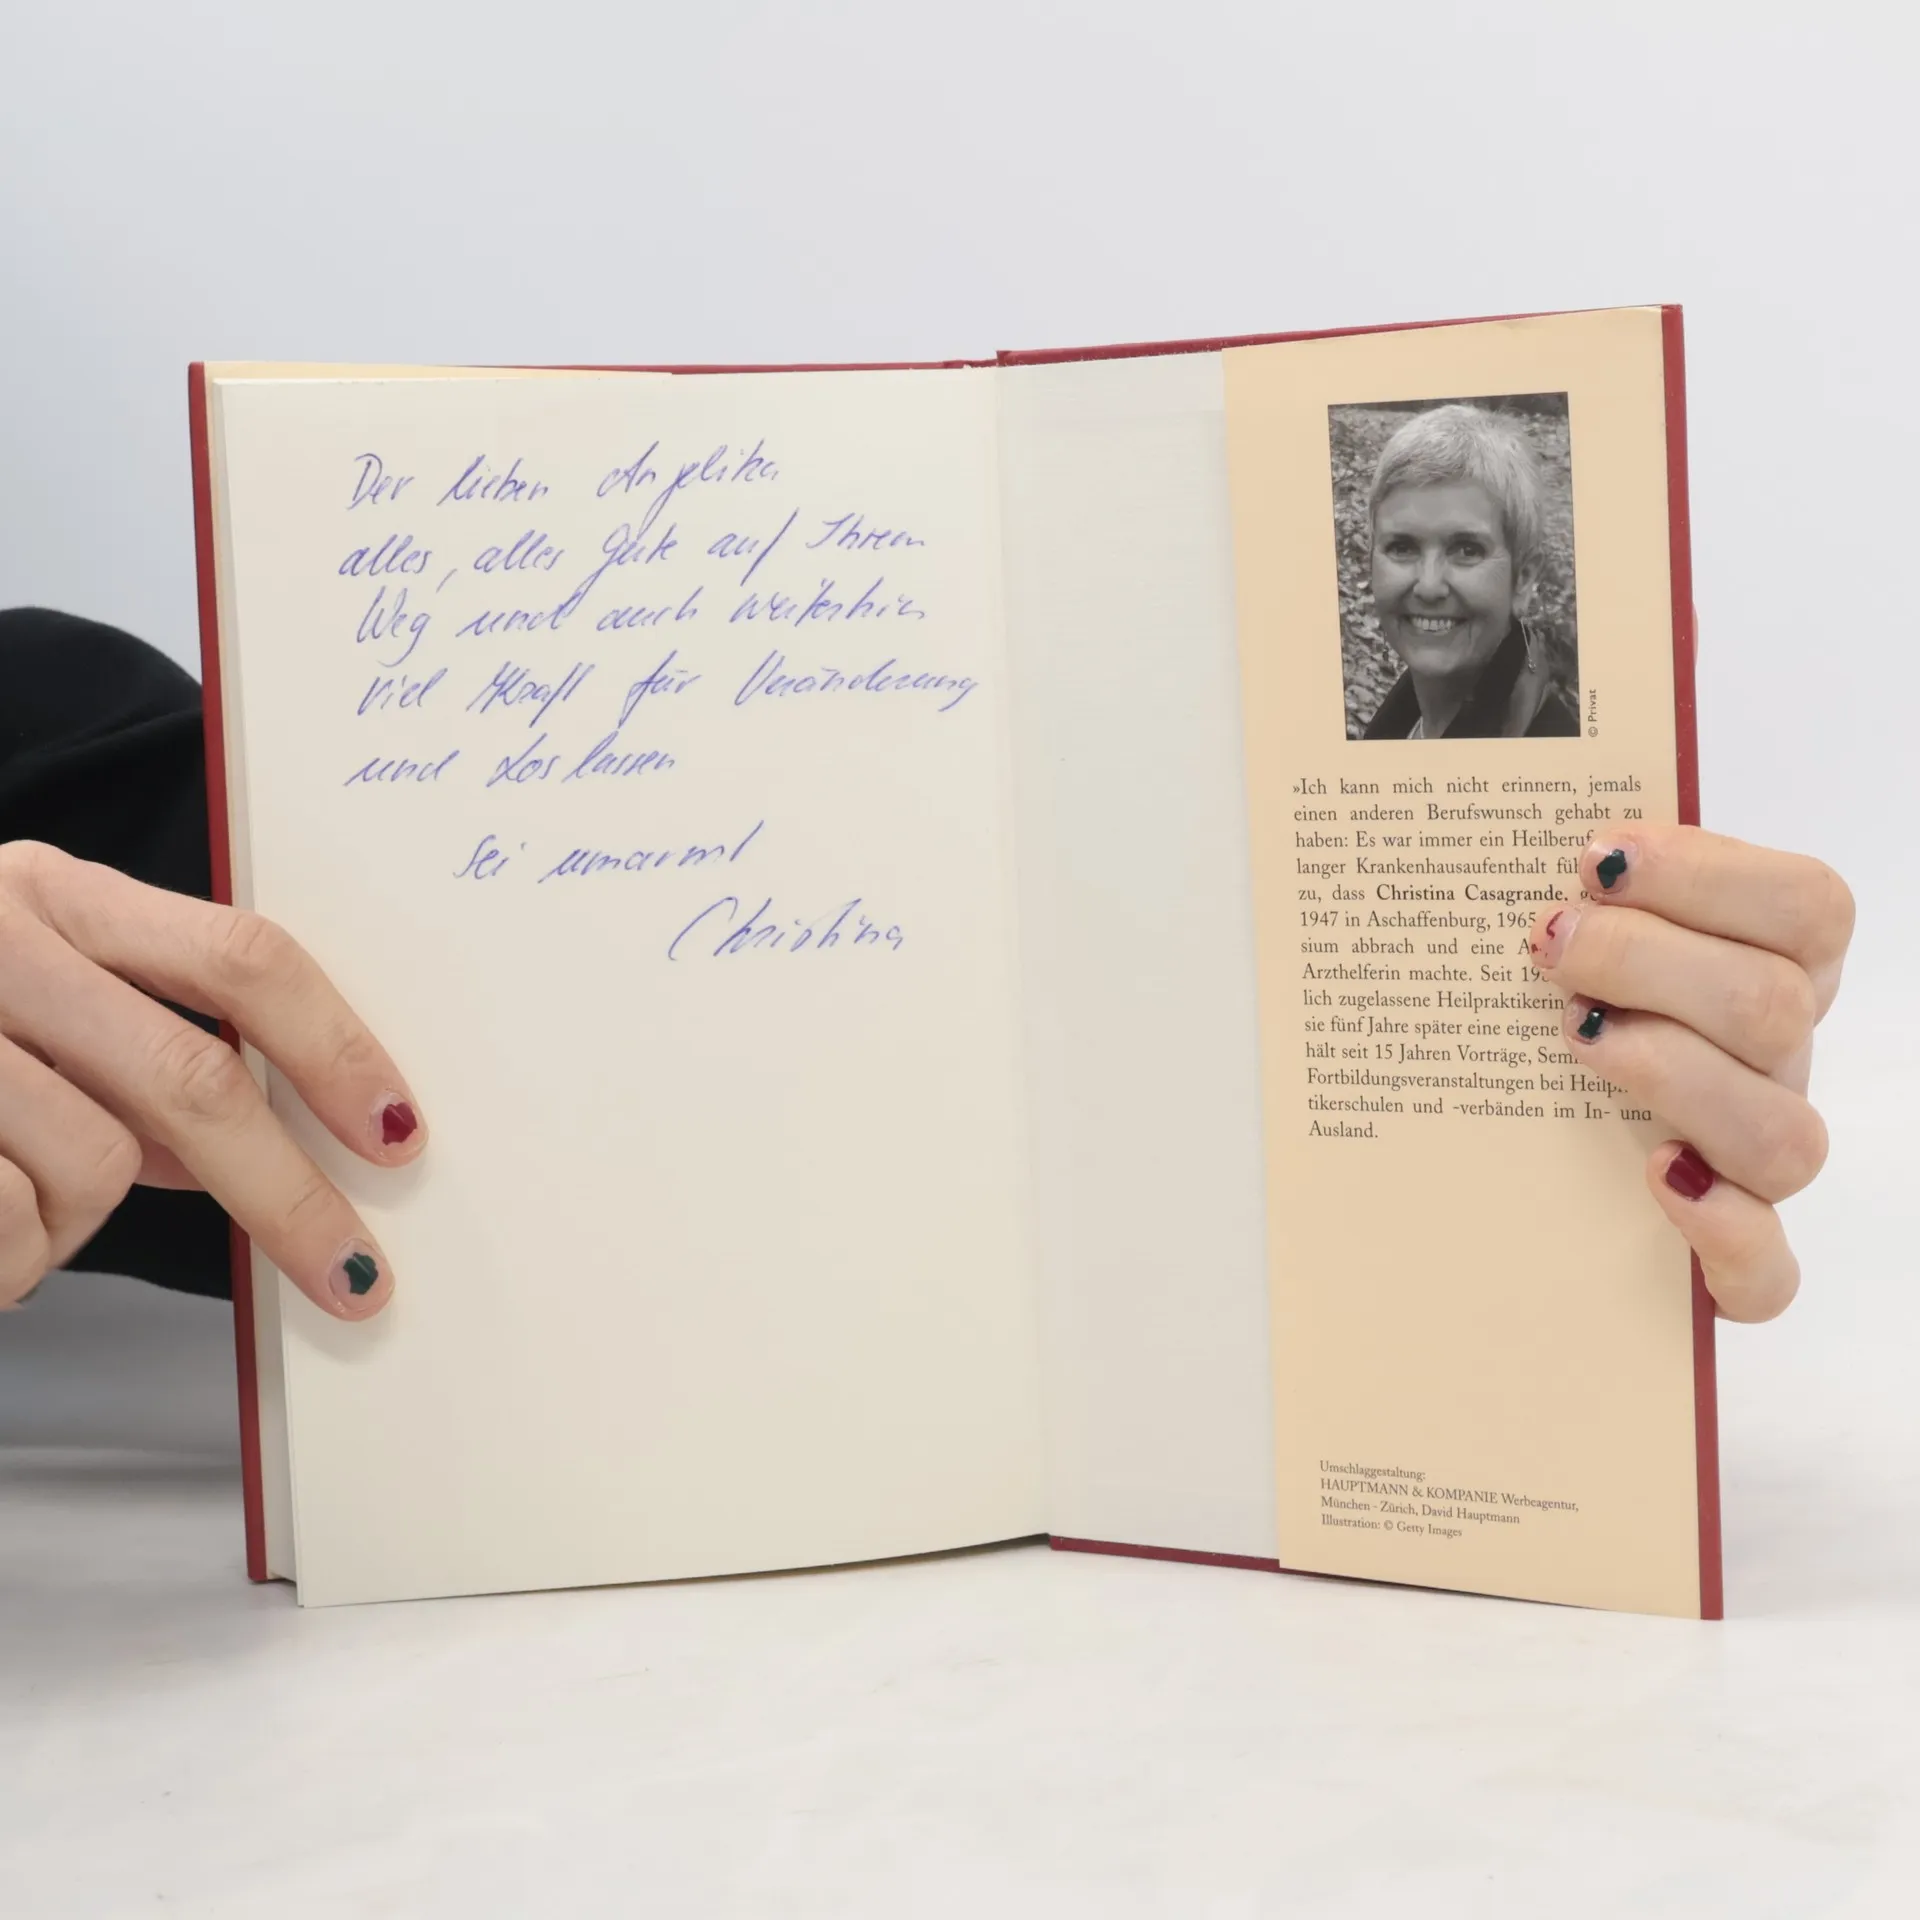 Der lieben Angelika
alles, alles Gute auf Ihrem
Weg und auch weiterhin
viel Kraft für Veränderung
und Loslassen
Sei umarmt
Christina
© Privat
»Ich kann mich nicht erinnern, jemals
einen anderen Berufswunsch gehabt zu
haben: Es war immer ein Heilberuf
langer Krankenhausaufenthalt
zu, dass Christina Casagrande,
1947 in Aschaffenburg, 1965
sium abbrach und eine
Arzthelferin machte. Seit
lich zugelassene Heilpraktikerin
sie fünf Jahre später eine eigene
hält seit 15 Jahren Vorträge,
Fortbildungsveranstaltungen bei
tikerschulen und -verbänden im In- und
Ausland.
Umschlaggestaltung:
HAUPTMANN & KOMPANIE Werbeagentur,
München - Zürich, David Hauptmann
Illustration: © Getty Images